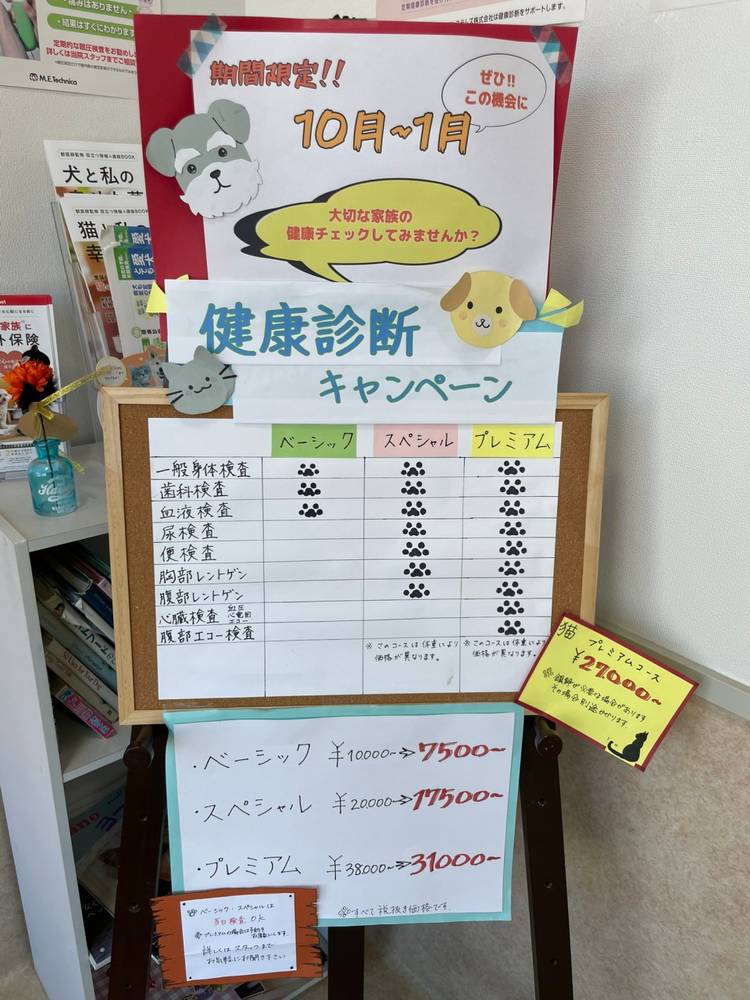 痛みはありません
結果はすぐにわかります
定期的な眼圧検査をお勧めし
詳しくは当院スタッフまでご相談
M.E.Technica
定期健康診断を
ズ株式会社は健康診断をサポートします。
期間限定!!
ぜひ!!
この機会に
10月~1月
大切な家族の
健康チェックしてみませんか?
犬と私の
猫と私の
幸
家族に
保険
健康診断
キャンペーン
ベーシック スペシャル プレミアム
一般身体検査
歯科検査
血液検査
尿検査
便検査
胸部レントゲン
腹部レントゲン
心臓検査 血圧 心電図 エコー
腹部エコー検査
※このコースは体重により
価格が異なります。
※このコースは体重により
価格が異なります。
猫 プレミアムコース
¥27,000~
鎮静が必要な場合があります
その場合別途かかります。
・ベーシック ¥10,000~→7500~
・スペシャル ¥20,000→17500~
・プレミアム ¥38,000~→31000~
すべて税抜き価格です。
ベーシック・スペシャルは
当日検査OK
プレミアムの場合は予約を
お願いします。
詳しくはスタッフまで
お気軽にお聞き下さい